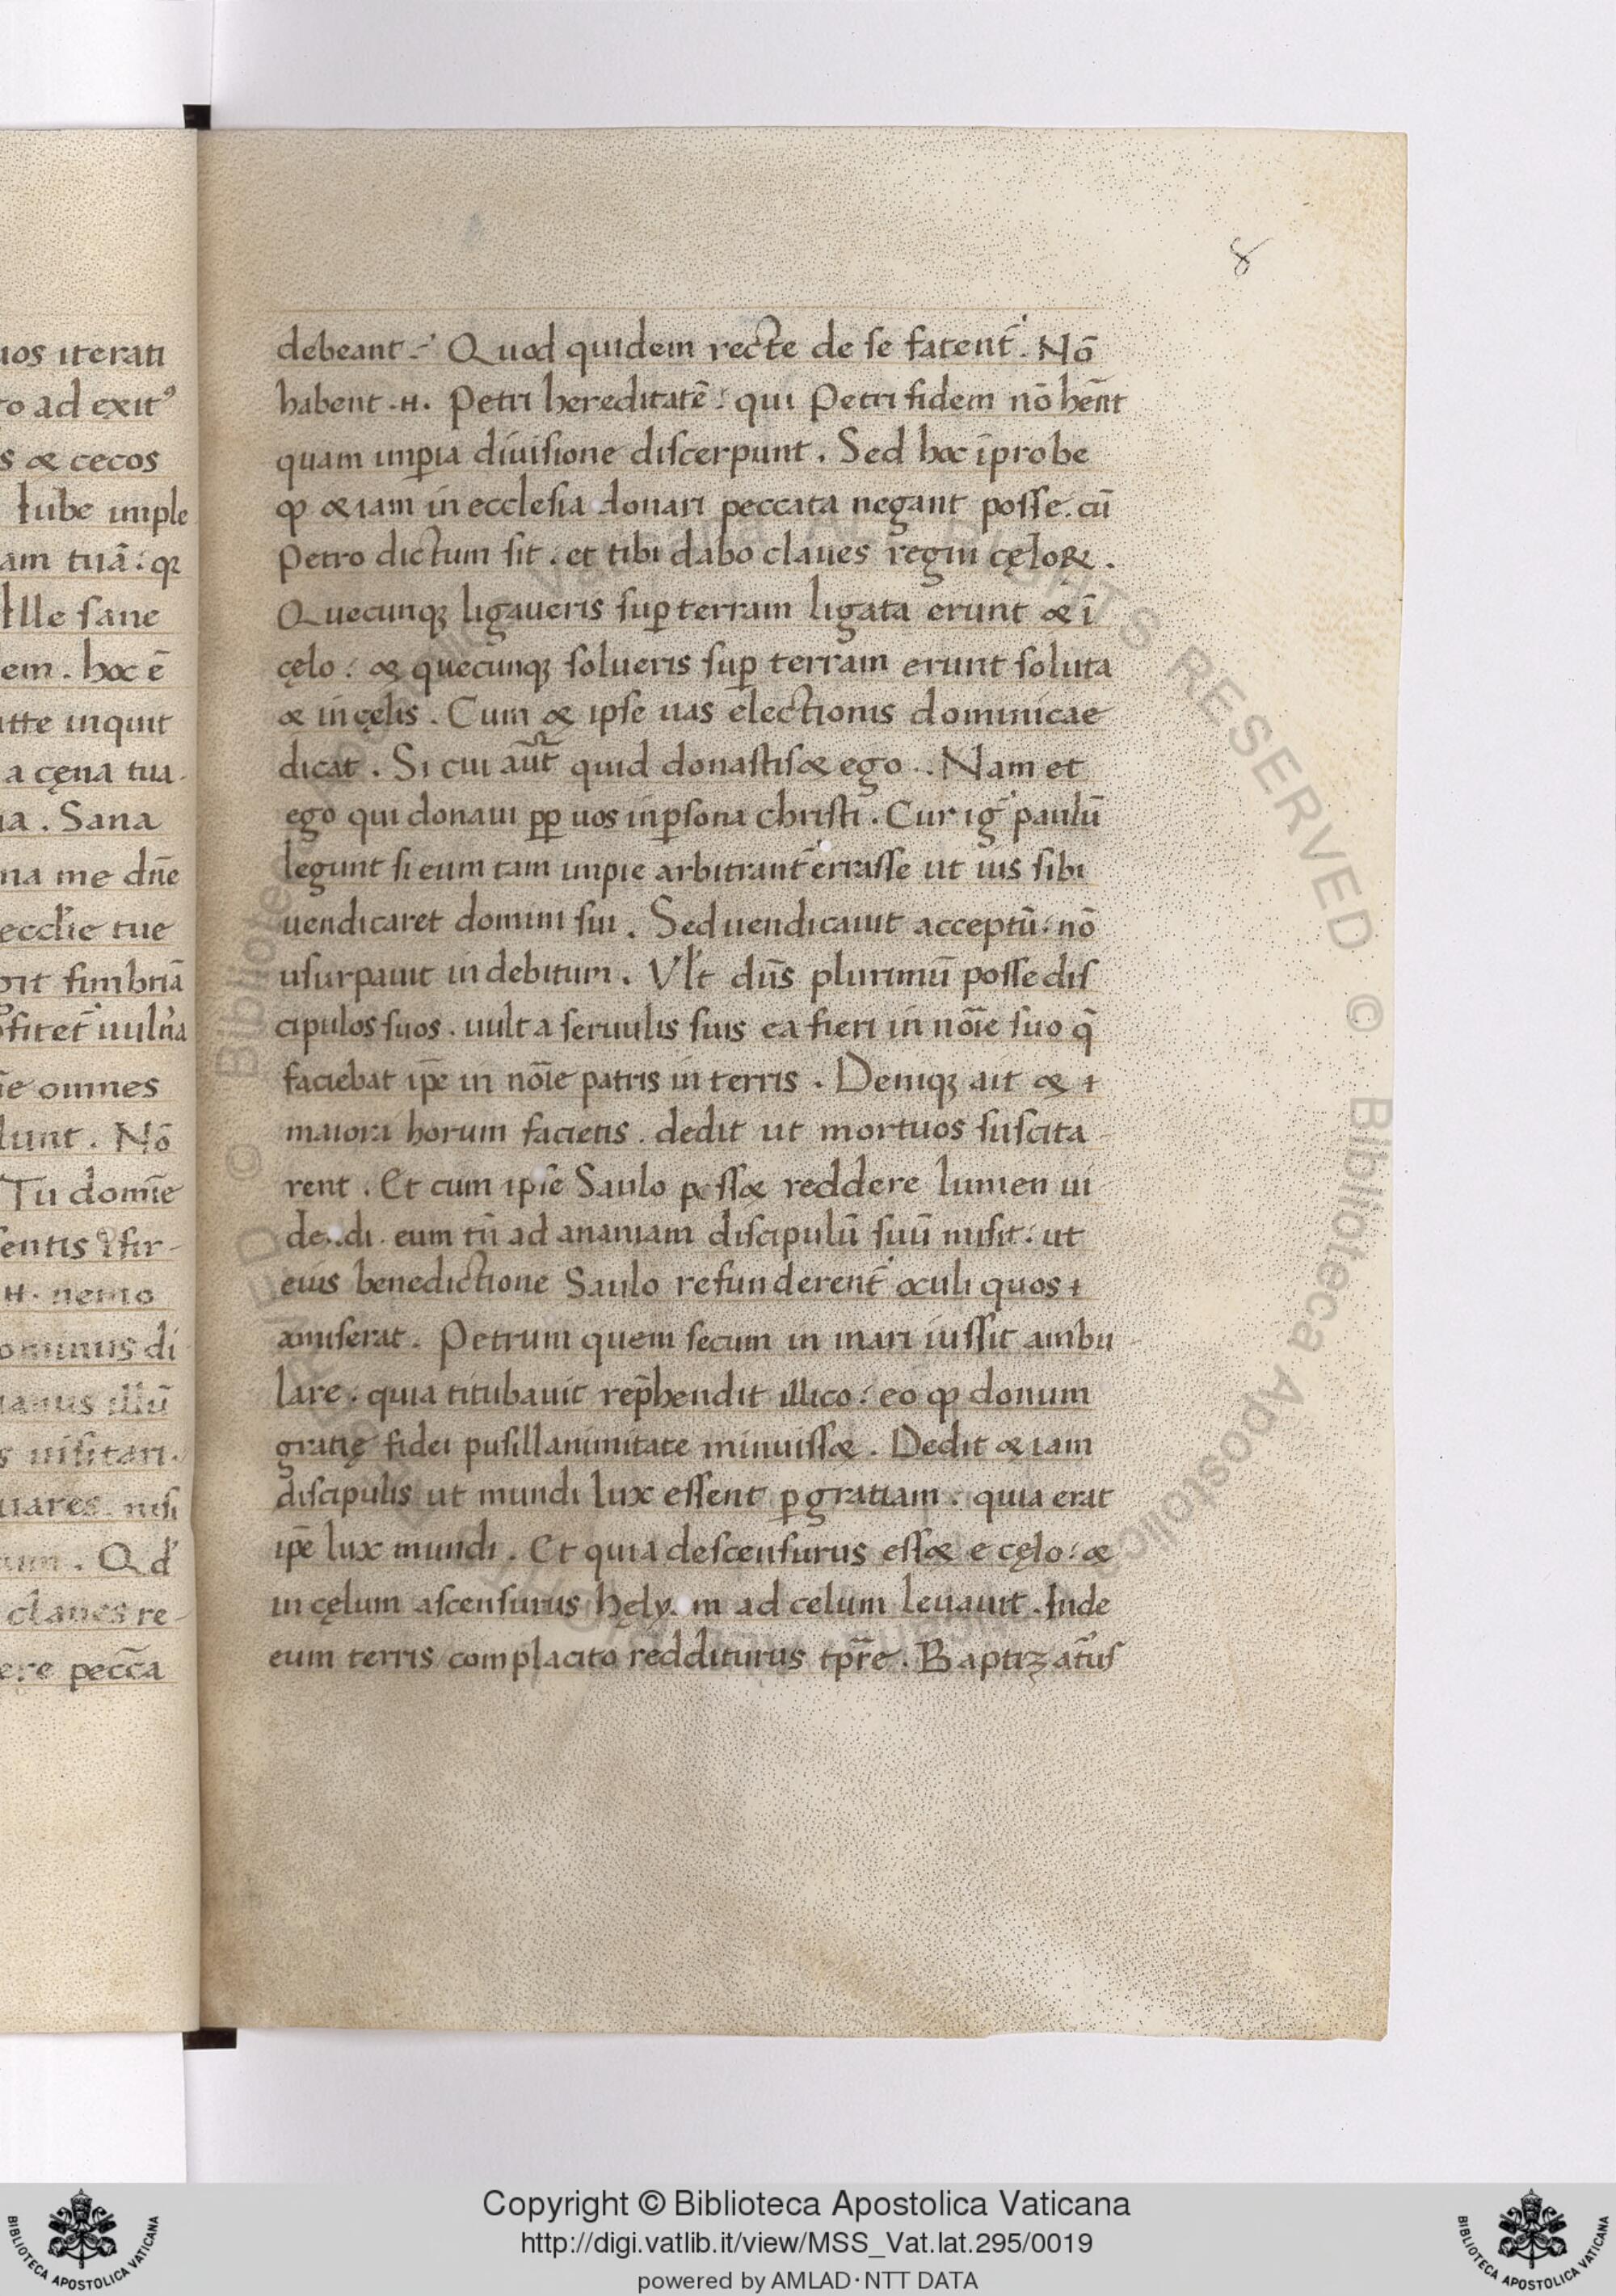 uos iterati
ro ad exitꝰ
s & cecos
Iube imple
am tuā: qꝫ
Ille sane
dem. hoc ē
itte inquit
a cęna tua.
na. Sana
na me dn̄e
eccl̓ie tue
git fimbriā
ꝯfitet᷑ uuln̓a
īe omnes
lunt. Nō
Tu domīe
entis ꝯfir-
.H. nemo
ominus di
ianus illū
s uisitari.
uares. nisi
. Qd̓
claues re-
ere pecc̄a
8
debeant. Quod quidem recte de se fatent᷑. Nō
habent .H. Petri hereditatē: qui Petri fidem nō hēnt
quam imꝑia diuisione discerpunt. Sed hoc īprobe
ꝙ &iam in ecclesia donari peccata negant posse. cū
Petro dictum sit. et tibi dabo claues regni cęloꝝ.
Quecunqꝫ ligaueris suꝑ terram ligata erunt & ī
cęlo: & quecunqꝫ solueris suꝑ terram erunt soluta
& in cęlis. Cum & ipse uas electionis dominicae
dicat. Si cui aūt quid donastis & ego. Nam et
ego qui donaui ꝓꝑ uos in ꝑsona christi. Cur ig̓ paulū
legunt si eum tam impie arbitrant᷑ errasse ut ius sibi
uendicaret domini sui. Sed uendicauit acceptū: nō
usurpauit indebitum. Vl̓t dn̄s plurimū posse dis
cipulos suos. uult a seruulis suis ea fieri in noīe suo q̄
faciebat ip̄e in noīe patris in terris. Deniqꝫ ait & ɨ
maiora horum facietis. dedit ut mortuos suscita-
rent. Et cum ipse Saulo poss& reddere lumen ui
dendi. eum tn̄ ad ananiam discipulū suū misit: ut
eius benedictione Saulo refunderent᷑ oculi quos ɨ
amiserat. Petrum quem secum in mari iussit ambu-
lare. quia titubauit rep̄hendit illico: eo ꝙ donum
gratię fidei pusillanimitate minuiss&. Dedit &iam
discipulis ut mundi lux essent ꝑ gratiam. quia erat
ip̄e lux mundi. Et quia descensurus ess& e cęlo: &
in cęlum ascensurus hęly m ad celum leuauit. Inde
eum terris complacito redditurus tp̄re. Baptizat᷑us
Copyright © Biblioteca Apostolica Vaticana
http://digi.vatlib.it/view/MSS_Vat.lat.295/0019
powered by AMLAD·NTT DATA
BIBLIOTECA APOSTOLICA VATICANA
BIBLIOTECA APOSTOLICA VATICANA